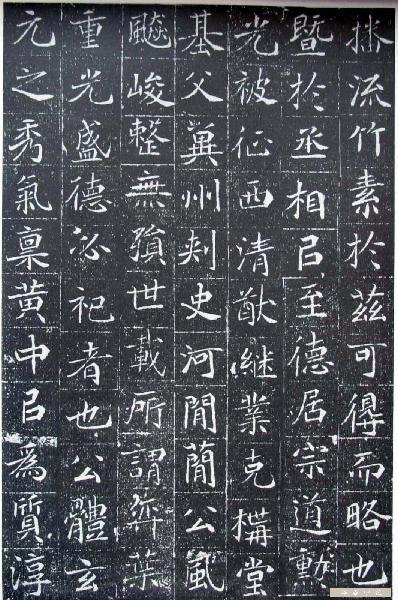 播流竹素於茲可得而略也
暨於丞相㠯至德居宗道勳
光被征西清猷継業克構堂
基父冀州刾史河間簡公風
飈峻整無殞世載所謂弈葉
重光盛德必祀者也公體玄
元之秀氣稟黃中㠯為質淳